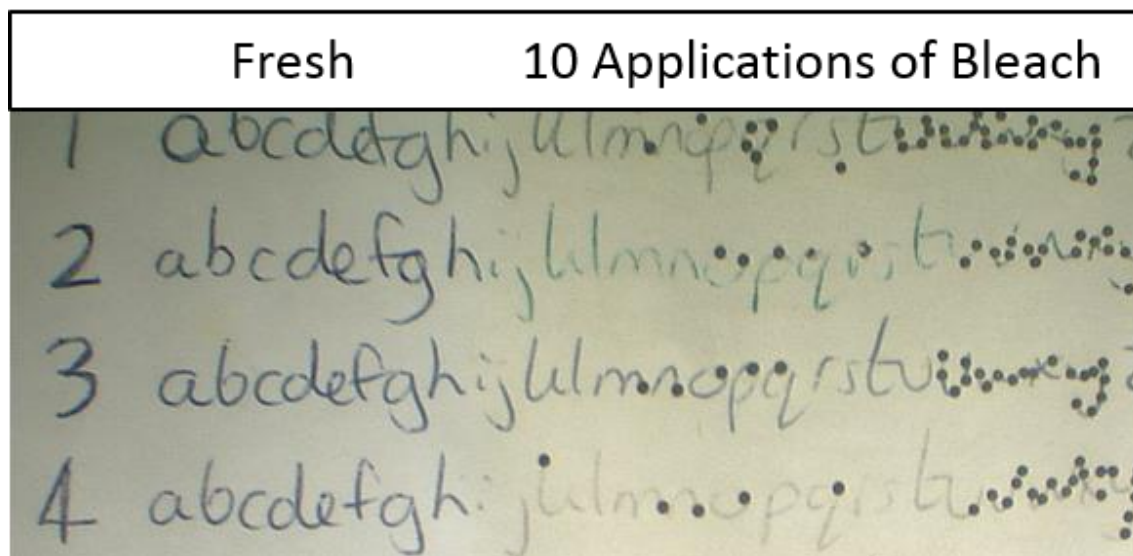 Fresh 10 Applications of Bleach
1 abcdefghijklmnopqrstuvwxyz
2 abcdefghijklmnopqrstuvwxy
3 abcdefghijklmnopqrstuvwxyz
4 abcdefghijklmnopqrstuvwxy